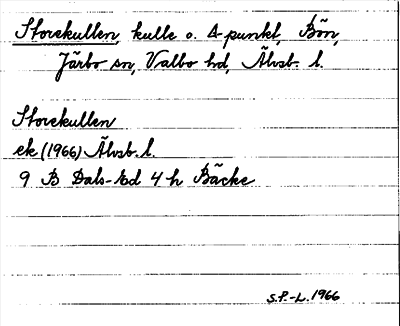 Storekullen, kulle o. Δ punkt, Bön,
Järbo sn, Valbo hd, Älvsb. l.
Storekullen
ek (1966) Älvsb. l.
9 B Dals-Ed 4 h Bäcke
S.P.-L. 1966